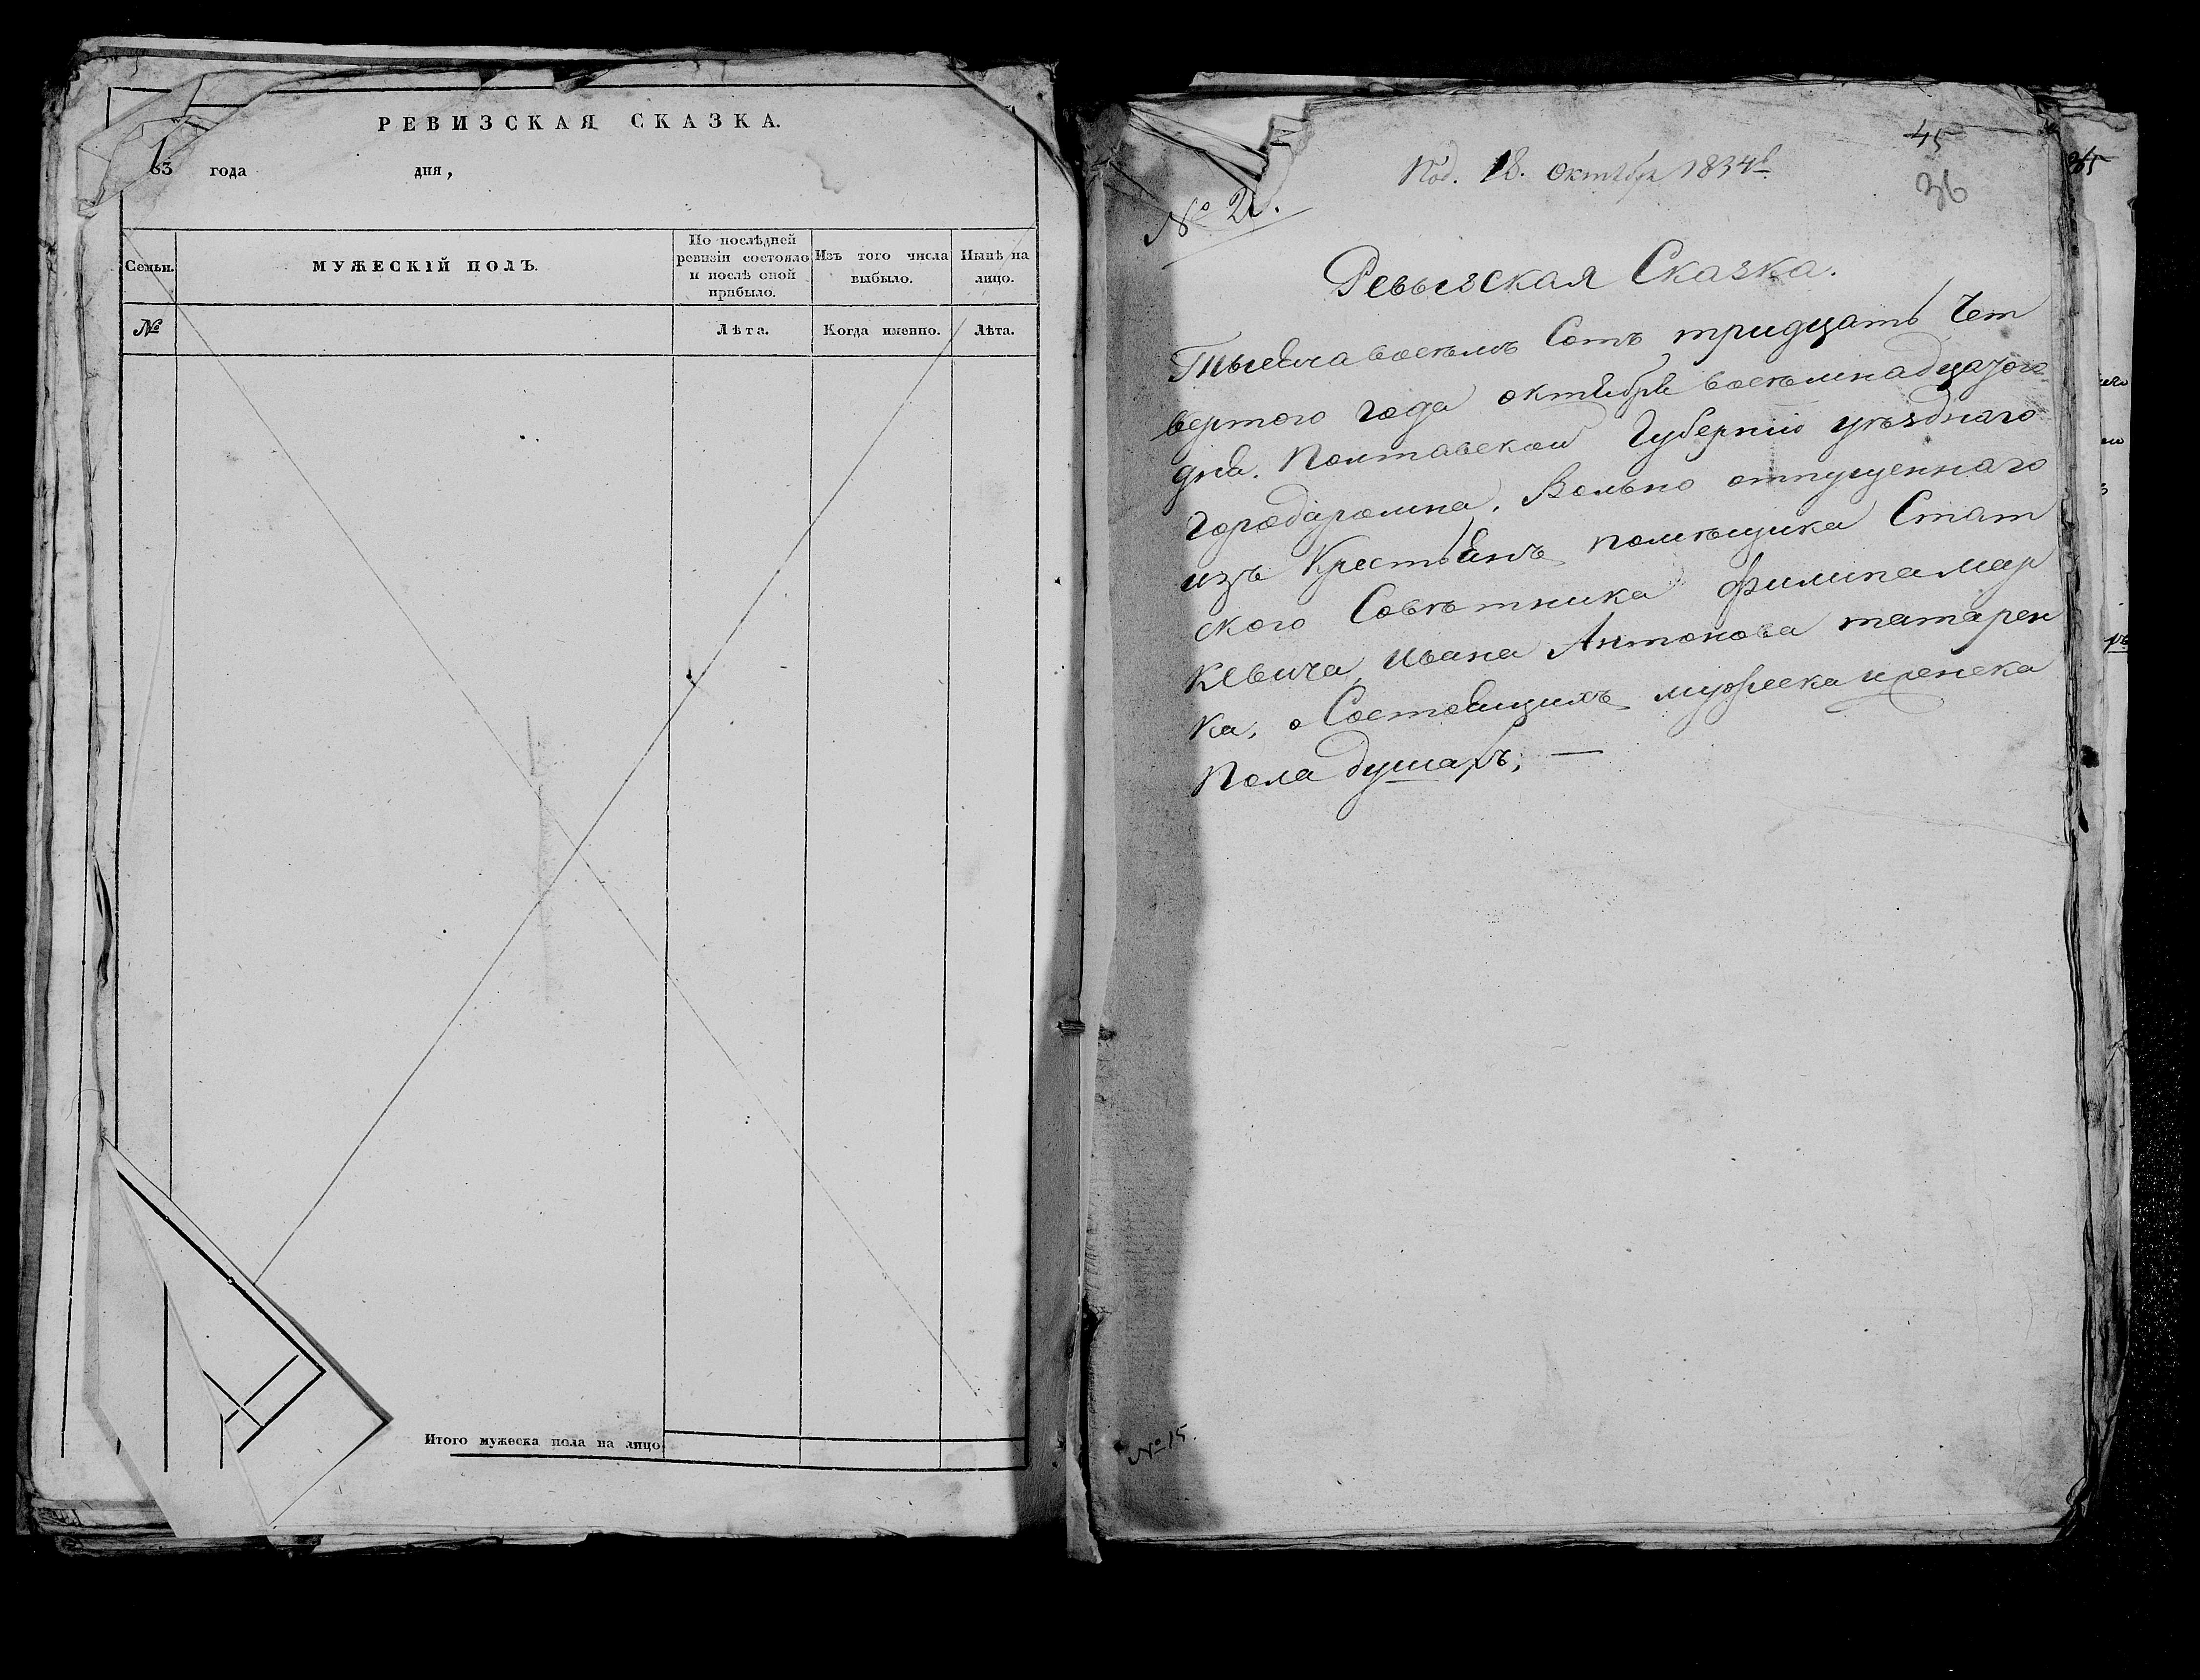 РЕВИЗСКАЯ СКАЗКА.
183 года дня,
Семьи.
МУЖЕСКІЙ ПОЛЪ.
По послѣдней
ревизіи состояло
и послѣ оной
прибыло.
Изъ того числа
выбыло.
Нынѣ на
лицо.
№
Лѣта.
Когда именно.
Лѣта.
Итого мужеска пола на лицо
45
36
Под. 18. октября 1834
№ 2
Ревызская Сказка.
Тысяча восемь Сотъ тридцать Чет
вертого года октября восемнадцатого
дня. Полтавской Губерніи уѣзднаго
города ромна, Вольно отпущеннаго
изъ Крестьянъ помѣщика Стат
ского Совѣтника филипа мар
кевича, ивана Антонова татарен
ка, о Состоящихъ мужеска и женска
Пола душахъ, —
№ 15.